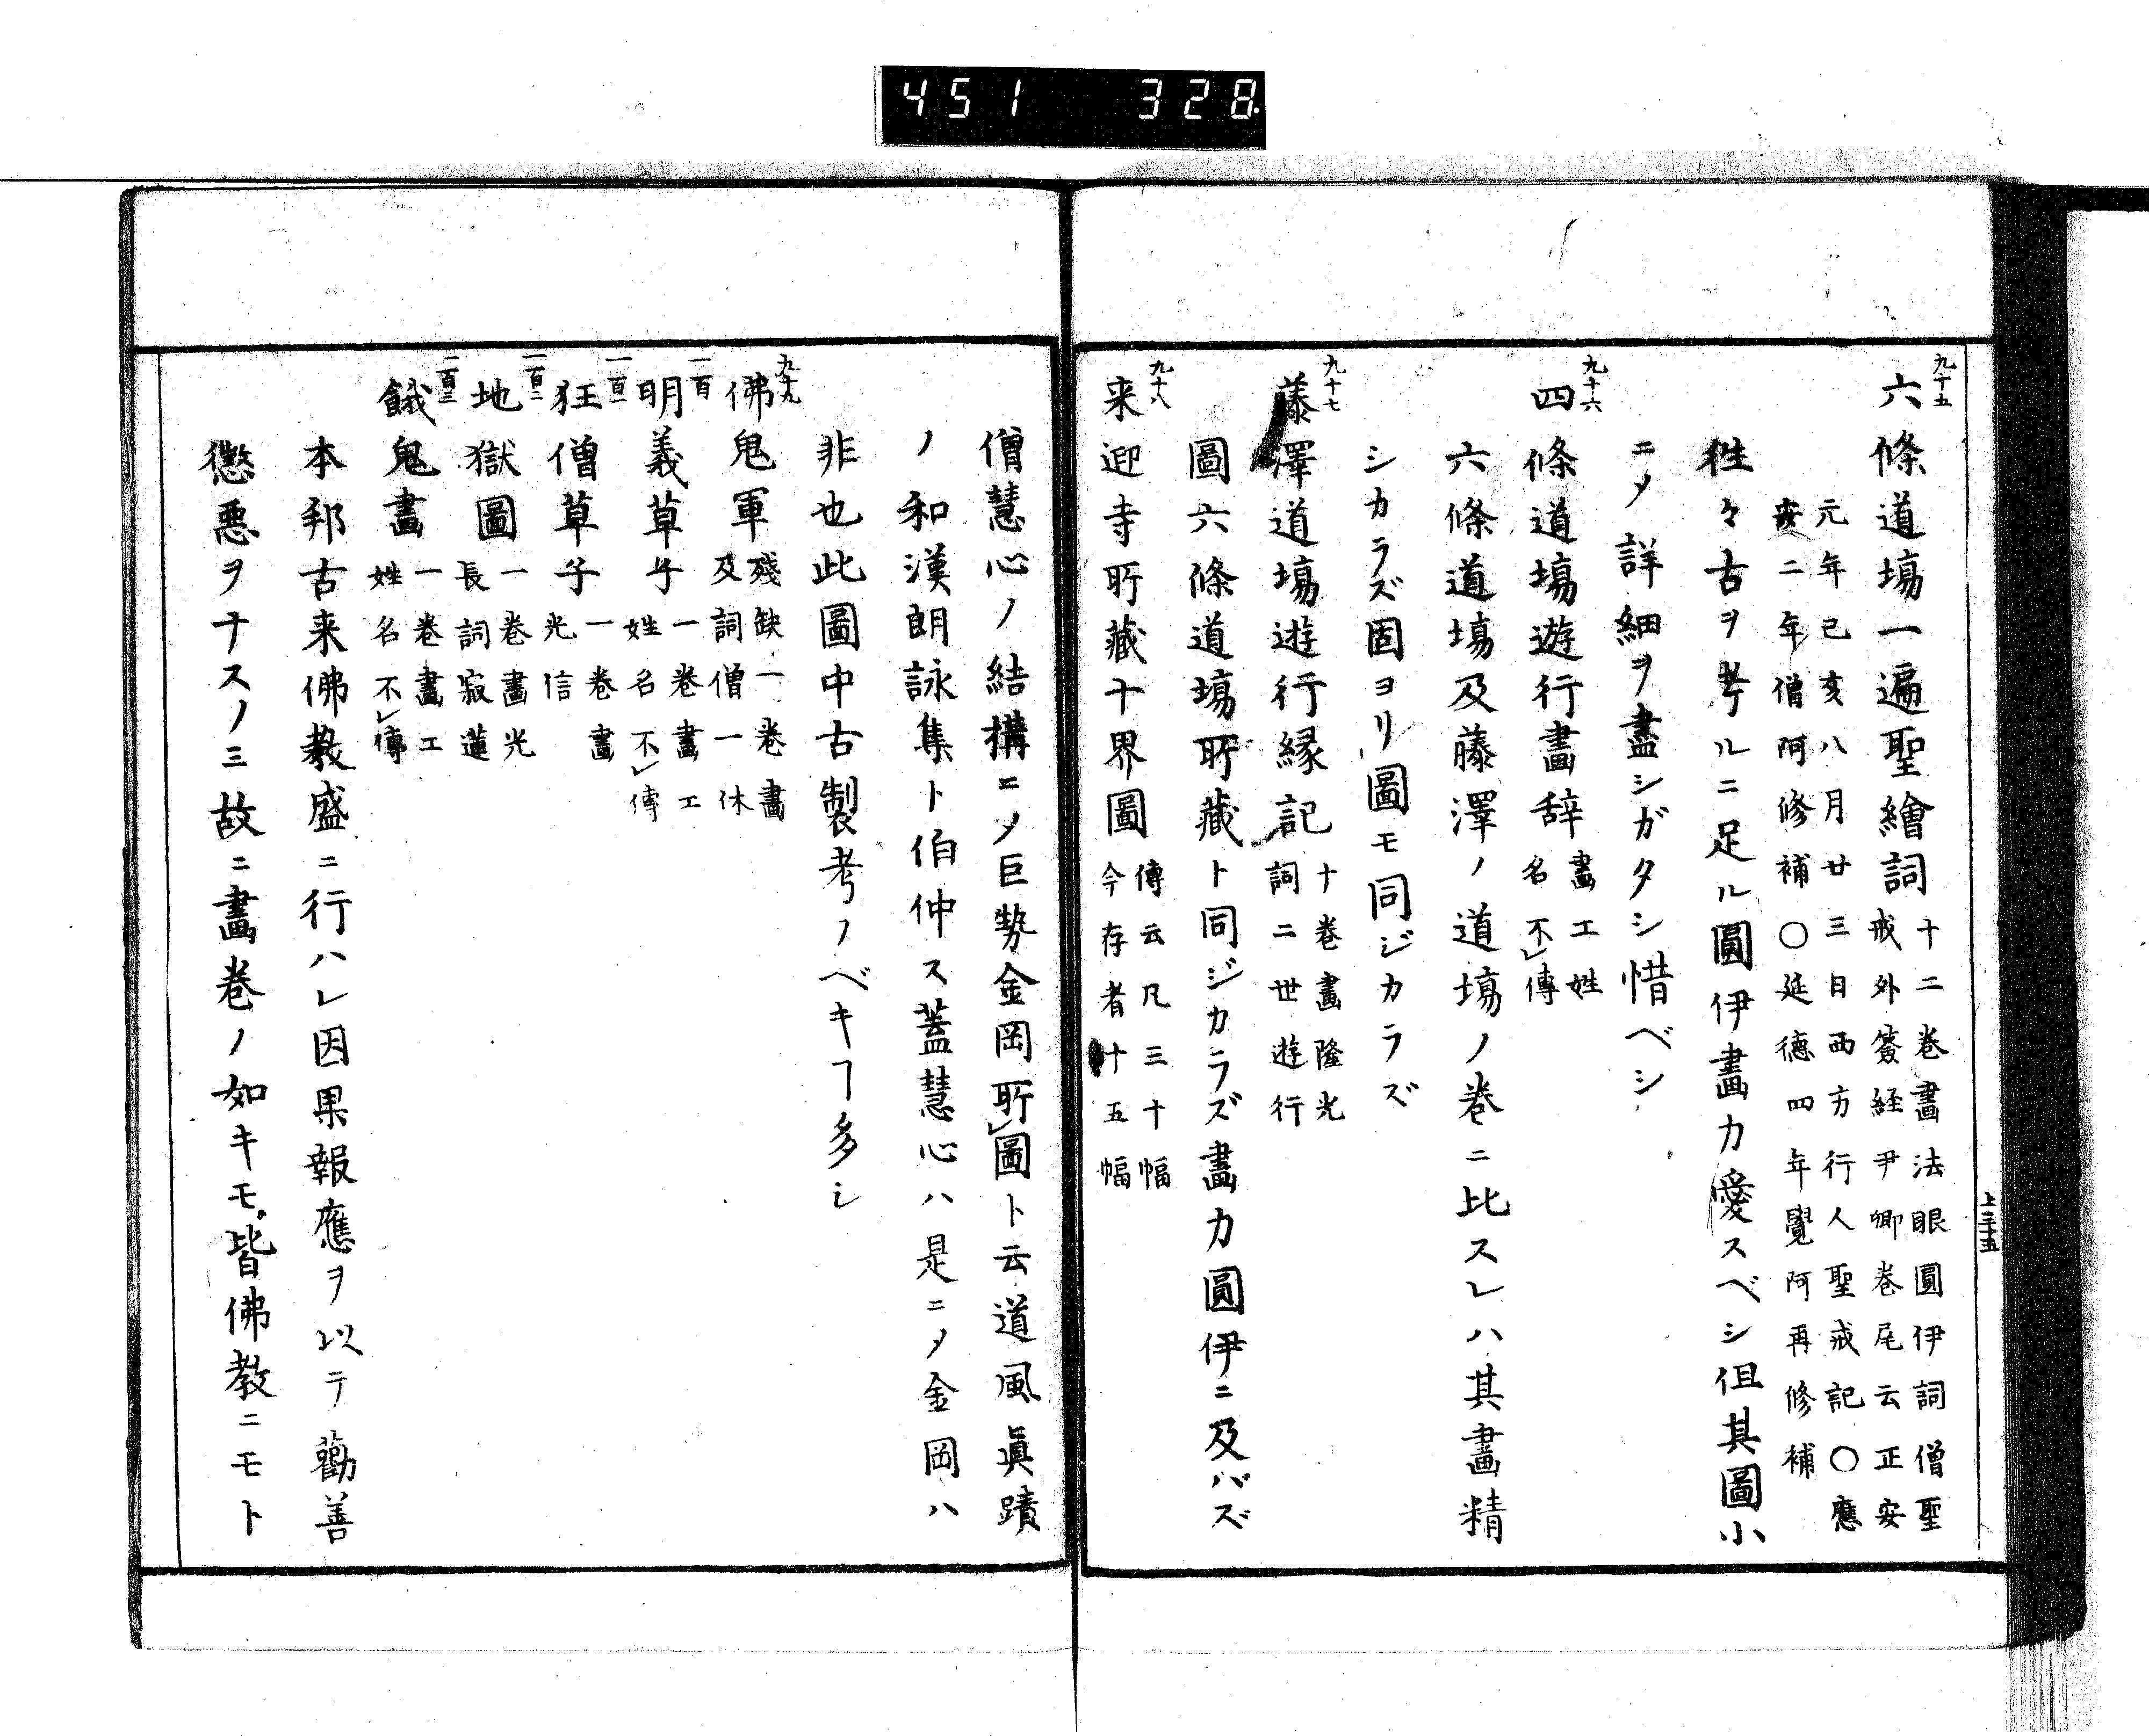 451 328
九十五
六條道場一遍聖繪詞
十二巻畫法眼圓伊詞僧聖
戒外簽経尹卿巻尾云正安
元年己亥八月廿三日西方行人聖戒記〇應
安二年僧阿修補〇延德四年覺阿再修補
徃々古ヲ考ルニ足ル圓伊畫力愛スベシ伹其圖小
ニメ詳細ヲ盡シガタシ惜ベシ
九十六
四條道場遊行畫辞
畫工姓
名不レ傳
六條道場及藤澤ノ道場ノ巻ニ比スレハ其畫精
シカラズ固ヨリ圖モ同ジカラズ
九十七
藤澤道場遊行縁記
十巻畫隆光
詞二世遊行
圖六條道場所藏ト同ジカラズ畫力圓伊ニ及バズ
九十八
来迎寺所藏十界圖
傳云凡三十幅
今存者十五幅
上三十五
僧慧心ノ結構ニメ巨勢金岡所レ圖ト云道風眞蹟
ノ和漢朗詠集ト伯仲ス蓋慧心ハ是ニメ金岡ハ
非也此圖中古製考ノベキヿ多シ
九十九
佛鬼軍
殘缺一巻畫
及詞僧一休
一百
明義草子
一巻畫工
姓名不レ傳
一百一
狂僧草子
一巻畫
光信
一百二
地獄圖
一巻畫光
長詞寂蓮
一百三
餓鬼畫
一巻畫工
姓名不レ傳
本邦古来佛教盛ニ行ハレ因果報應ヲ以テ勸善
懲悪ヲナスノミ故ニ畫巻ノ如キモ皆佛教ニモト